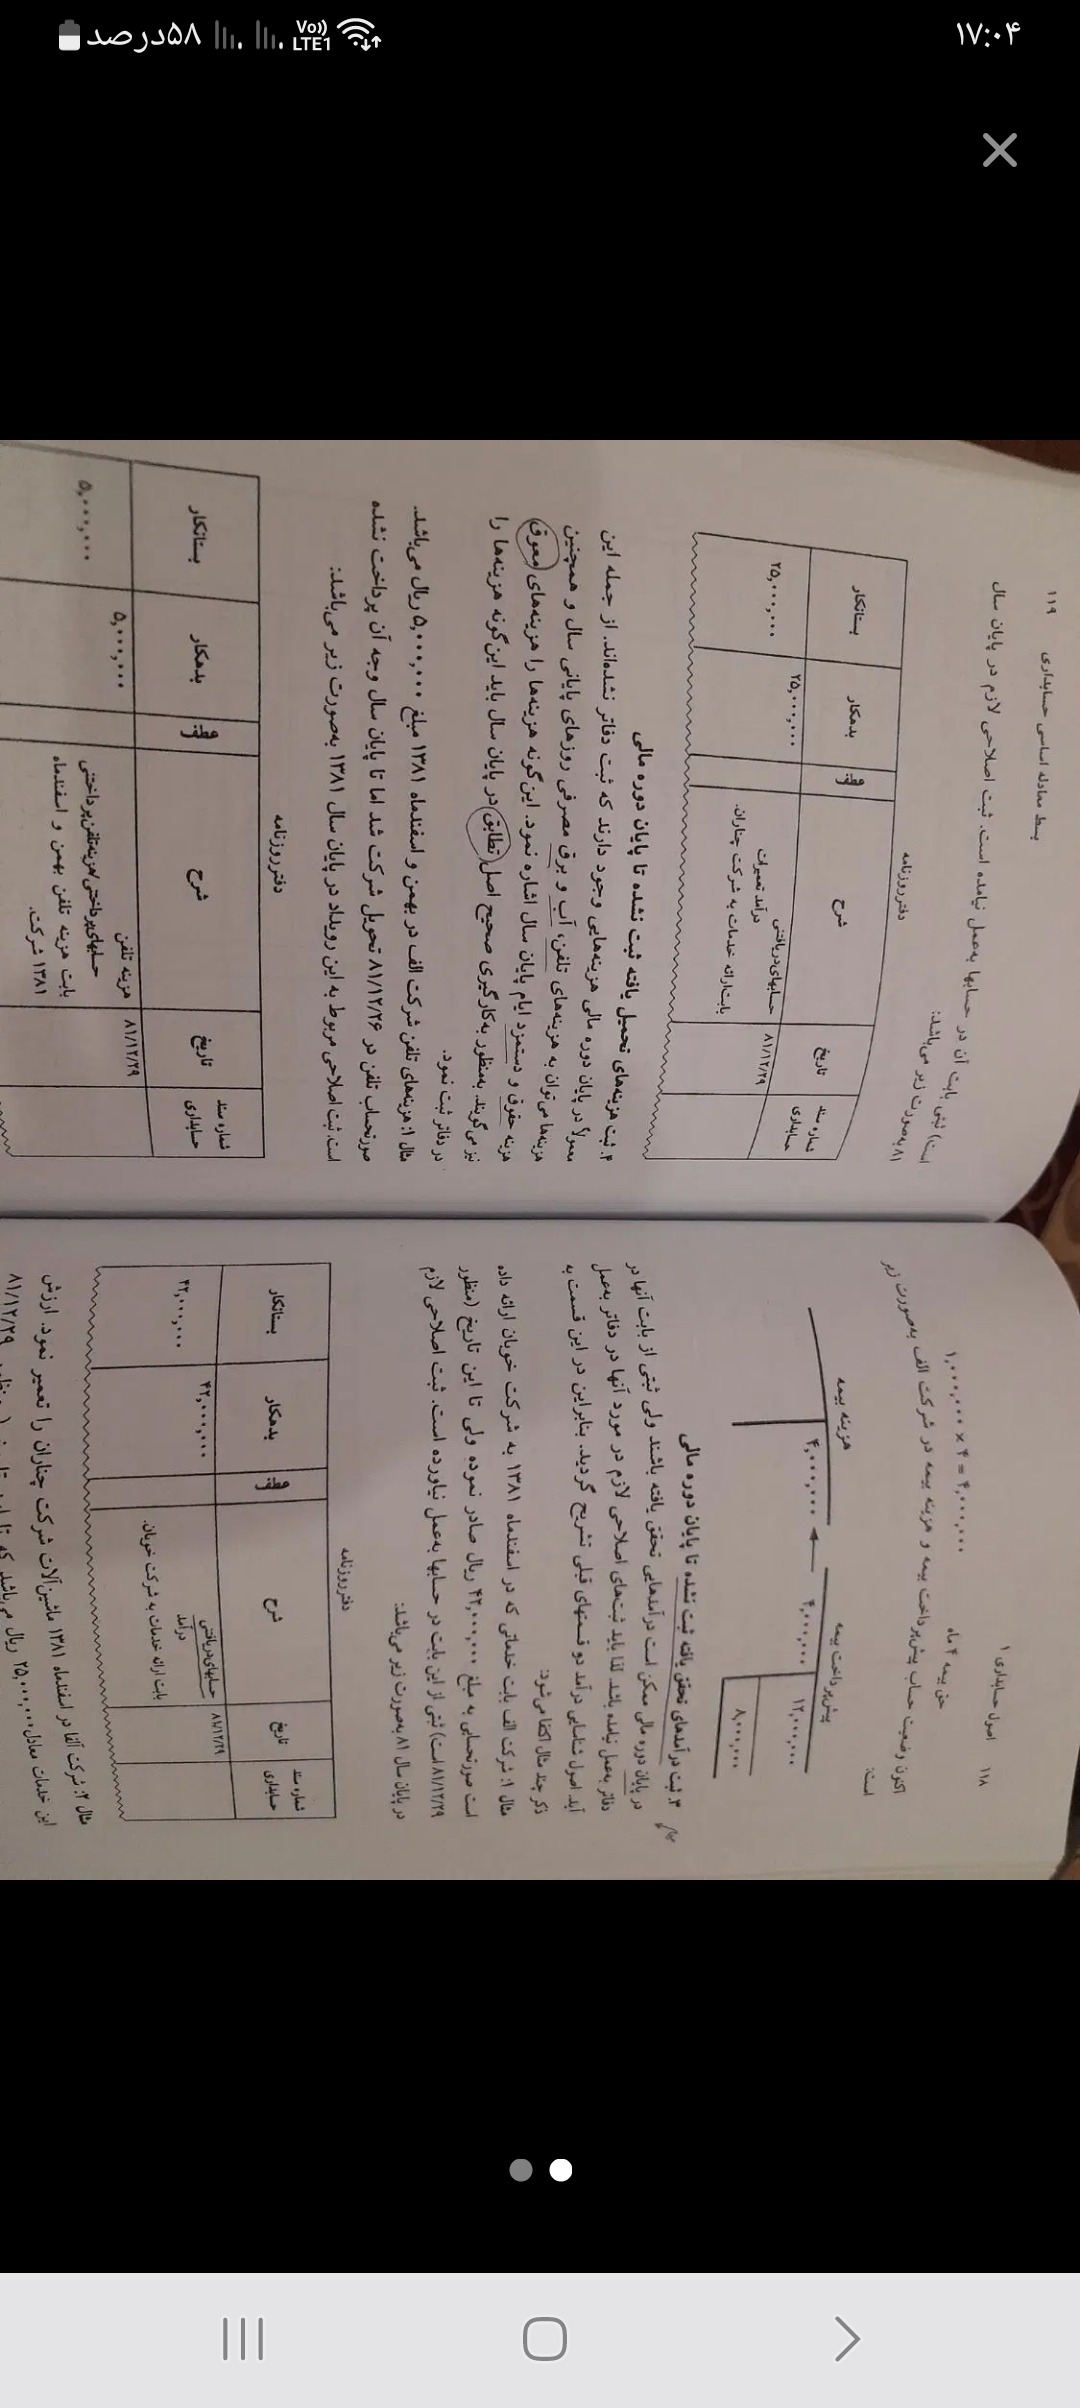 ۱۷:۰۴
۵۸درصد
Vo))
LTE1
۱۱۸
اصول حسابداری ۱
حق بیمه ۴ ماه
۱,۰۰۰,۰۰۰ × ۴ = ۴,۰۰۰,۰۰۰
اکنون وضعیت حساب پیش‌پرداخت بیمه و هزینه بیمه در شرکت الف به‌صورت زیر
است:
پیش‌پرداخت بیمه
هزینه بیمه
۱۲,۰۰۰,۰۰۰
۴,۰۰۰,۰۰۰
۴,۰۰۰,۰۰۰
۸,۰۰۰,۰۰۰
۳. ثبت درآمدهای تحقق یافته ثبت نشده تا پایان دوره مالی
در پایان دوره مالی ممکن است درآمدهایی تحقق یافته باشند ولی ثبتی از بابت آنها در
دفاتر به‌عمل نیامده باشد. لذا باید ثبت‌های اصلاحی لازم در مورد آنها در دفاتر به‌عمل
آید. اصول شناسایی درآمد دو قسمتهای قبلی تشریح گردید. بنابراین در این قسمت به
ذکر چند مثال اکتفا می‌شود:
مثال ۱: شرکت الف بابت خدماتی که در اسفندماه ۱۳۸۱ به شرکت خوبان ارائه داده
است صورتحسابی به مبلغ ۴۲,۰۰۰,۰۰۰ ریال صادر نموده ولی تا این تاریخ (منظور
۸۱/۱۲/۲۹ است) ثبتی از این بابت در حسابها به‌عمل نیاورده است. ثبت اصلاحی لازم
در پایان سال ۸۱ به‌صورت زیر می‌باشد:
دفتر روزنامه
شماره سند حسابداری
تاریخ
شرح
عطف
بدهکار
بستانکار
۸۱/۱۲/۲۹
حسابهای دریافتنی
۴۲,۰۰۰,۰۰۰
درآمد
۴۲,۰۰۰,۰۰۰
بابت ارائه خدمات به شرکت خوبان.
مثال ۲: شرکت آلفا در اسفندماه ۱۳۸۱ ماشین‌آلات شرکت چناران را تعمیر نمود. ارزش
این خدمات معادل ۲۵,۰۰۰,۰۰۰ ریال می‌باشد که تا این تاریخ (منظور ۸۱/۱۲/۲۹
بسط معادله اساسی حسابداری
۱۱۹
است) ثبتی بابت آن در حسابها به‌عمل نیامده است. ثبت اصلاحی لازم در پایان سال
۸۱ به‌صورت زیر می‌باشد:
دفتر روزنامه
شماره سند حسابداری
تاریخ
شرح
عطف
بدهکار
بستانکار
۸۱/۱۲/۲۹
حسابهای دریافتنی
۲۵,۰۰۰,۰۰۰
درآمد تعمیرات
۲۵,۰۰۰,۰۰۰
بابت ارائه خدمات به شرکت چناران.
۴. ثبت هزینه‌های تحمیل یافته ثبت نشده تا پایان دوره مالی
معمولاً در پایان دوره مالی هزینه‌هایی وجود دارند که ثبت دفاتر نشده‌اند. از جمله این
هزینه‌ها می‌توان به هزینه‌های تلفن، آب و برق مصرفی روزهای پایانی سال و همچنین
هزینه حقوق و دستمزد ایام پایان سال اشاره نمود. این‌گونه هزینه‌ها را هزینه‌های معوق
نیز می‌گویند. به‌منظور به‌کارگیری صحیح اصل تطابق در پایان سال باید این‌گونه هزینه‌ها را
در دفاتر ثبت نمود.
مثال ۱: هزینه‌های تلفن شرکت الف در بهمن و اسفندماه ۱۳۸۱ مبلغ ۵,۰۰۰,۰۰۰ ریال می‌باشد.
صورتحساب تلفن در ۸۱/۱۲/۲۶ تحویل شرکت شد اما تا پایان سال وجه آن پرداخت نشده
است. ثبت اصلاحی مربوط به این رویداد در پایان سال ۱۳۸۱ به‌صورت زیر می‌باشد:
دفتر روزنامه
شماره سند حسابداری
تاریخ
شرح
عطف
بدهکار
بستانکار
۸۱/۱۲/۲۹
هزینه تلفن
۵,۰۰۰,۰۰۰
حسابهای پرداختنی/هزینه تلفن پرداختنی
۵,۰۰۰,۰۰۰
بابت هزینه تلفن بهمن و اسفندماه
۱۳۸۱ شرکت.